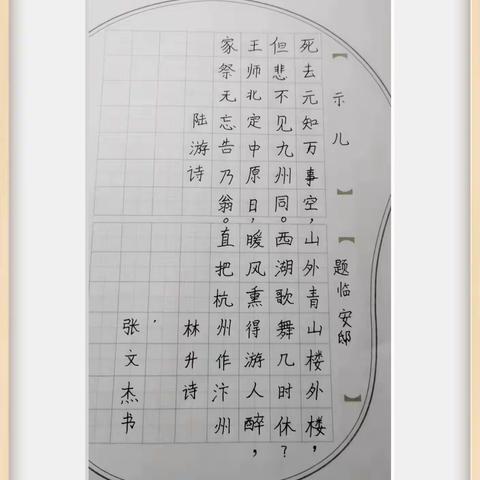 【示儿】
死去元知万事空，
但悲不见九州同。
王师北定中原日，
家祭无忘告乃翁。
陆游诗
【题临安邸】
山外青山楼外楼，
西湖歌舞几时休？
暖风熏得游人醉，
直把杭州作汴州
林升诗
张文杰书